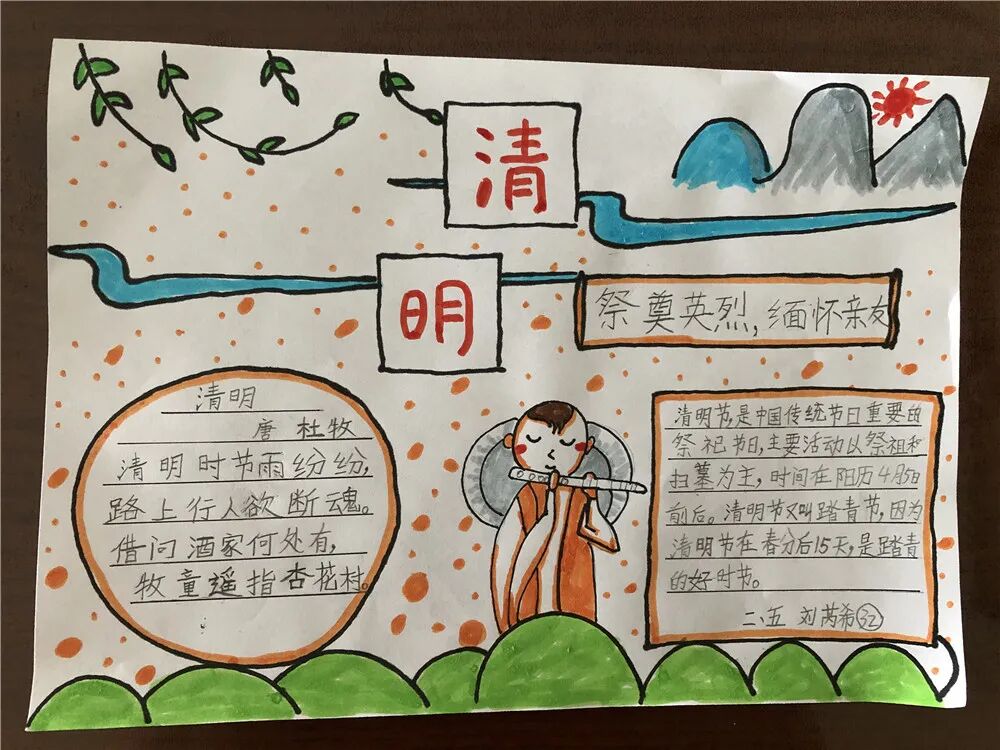 清
明
祭奠英烈,缅怀亲友
清明
唐 杜牧
清明时节雨纷纷,
路上行人欲断魂。
借问酒家何处有,
牧童遥指杏花村。
清明节,是中国传统节日重要的
祭祀节日,主要活动以祭祖和
扫墓为主,时间在阳历4月5日
前后。清明节又叫踏青节,因为
清明节在春分后15天,是踏青
的好时节。
二、五 刘芮希 32